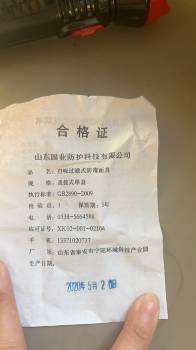 合格证
山东国业防护科技有限公司
品 名：自吸过滤式防毒面具
规 格：连接式单盒
执行标准：GB2890-2009
检 验 员：1 保质期：5年
电 话：0538-5664588
许可证号：XK02-001-02104
手 机：13371020737
厂 址：山东省泰安市宁阳环城科技产业园
生产日期：
2020年5月20日